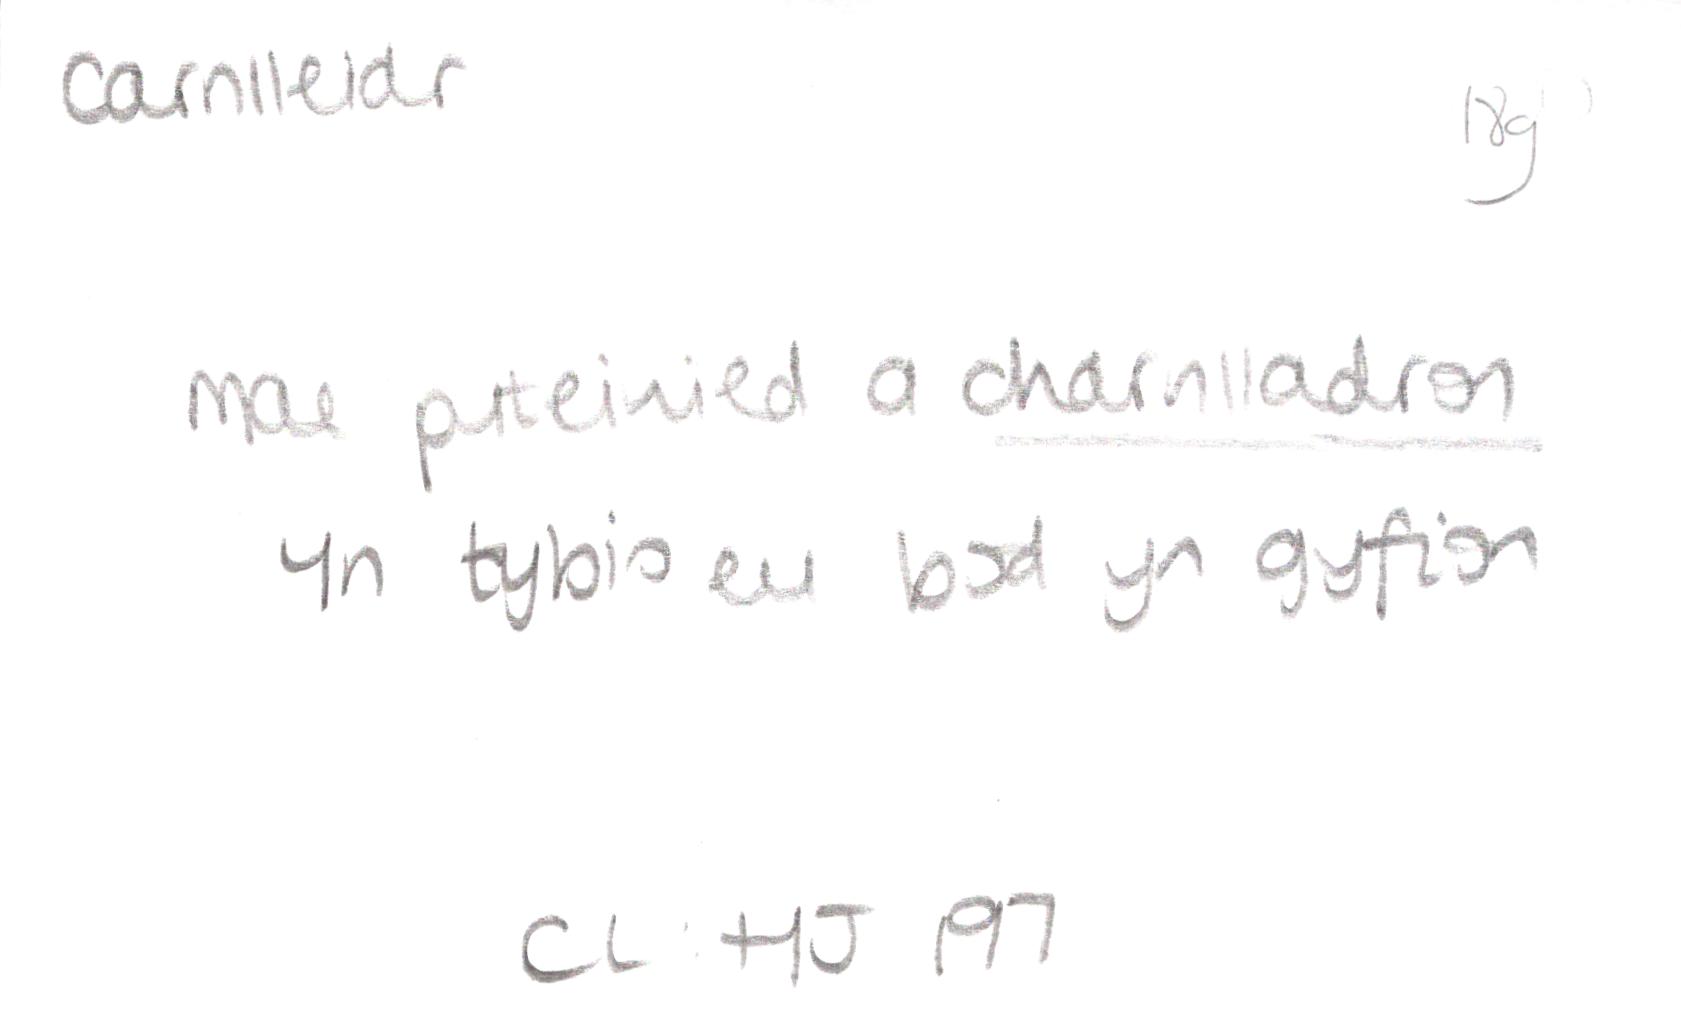 Carnlleidr
18g
mae puteinied a charnlladron
yn tybio eu bod yn gyfion
CL: HJ 197